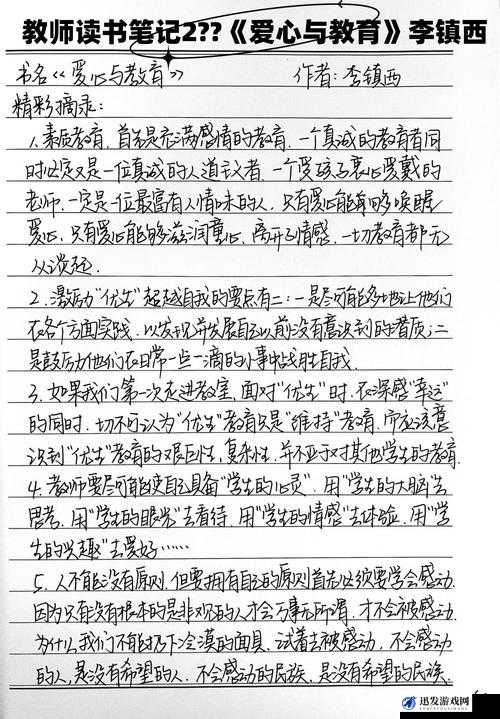 教师读书笔记2??《爱心与教育》李镇西
书名《爱心与教育》 作者:李镇西
精彩摘录:
1.素质教育,首先是充满感情的教育.一个真诚的教育者同
时必定又是一位真诚的人道主义者.一个受孩子衷心爱戴的
老师,一定是一位最富有人情味的人.只有爱心能够唤醒
爱心,只有爱心能够滋润童心,离开了情感,一切教育都无
从谈起.
2.激励"优生"超越自我的要点有二:一是尽可能多地让他们
在各个方面实践,以发现并发展自己以前没有意识到的潜质;二
是鼓励他们在日常一些一滴的小事中战胜自我.
3.如果我们第一次走进教室,面对"优生"时,在深感"幸运"
的同时,切不可认为"优生"教育只是"维持"教育,而应该意
识到"优生"教育的艰巨性,复杂性,并不亚于对其他学生的教育.
4.教师要尽可能使自己具备"学生的心灵",用"学生的大脑"去
思考,用"学生的眼光"去看待,用"学生的情感"去体验,用"学
生的兴趣"去爱好……
5.人不能没有原则.但要拥有自己的原则首先必须要学会感动.
因为只有没有根本的是非观的人才会万事无所谓,才不会被感动.
为什么我们不能扔下冷漠的面具,试着去被感动,不会感动
的人,是没有希望的人.不会感动的民族,是没有希望的民族.
迅发游戏网